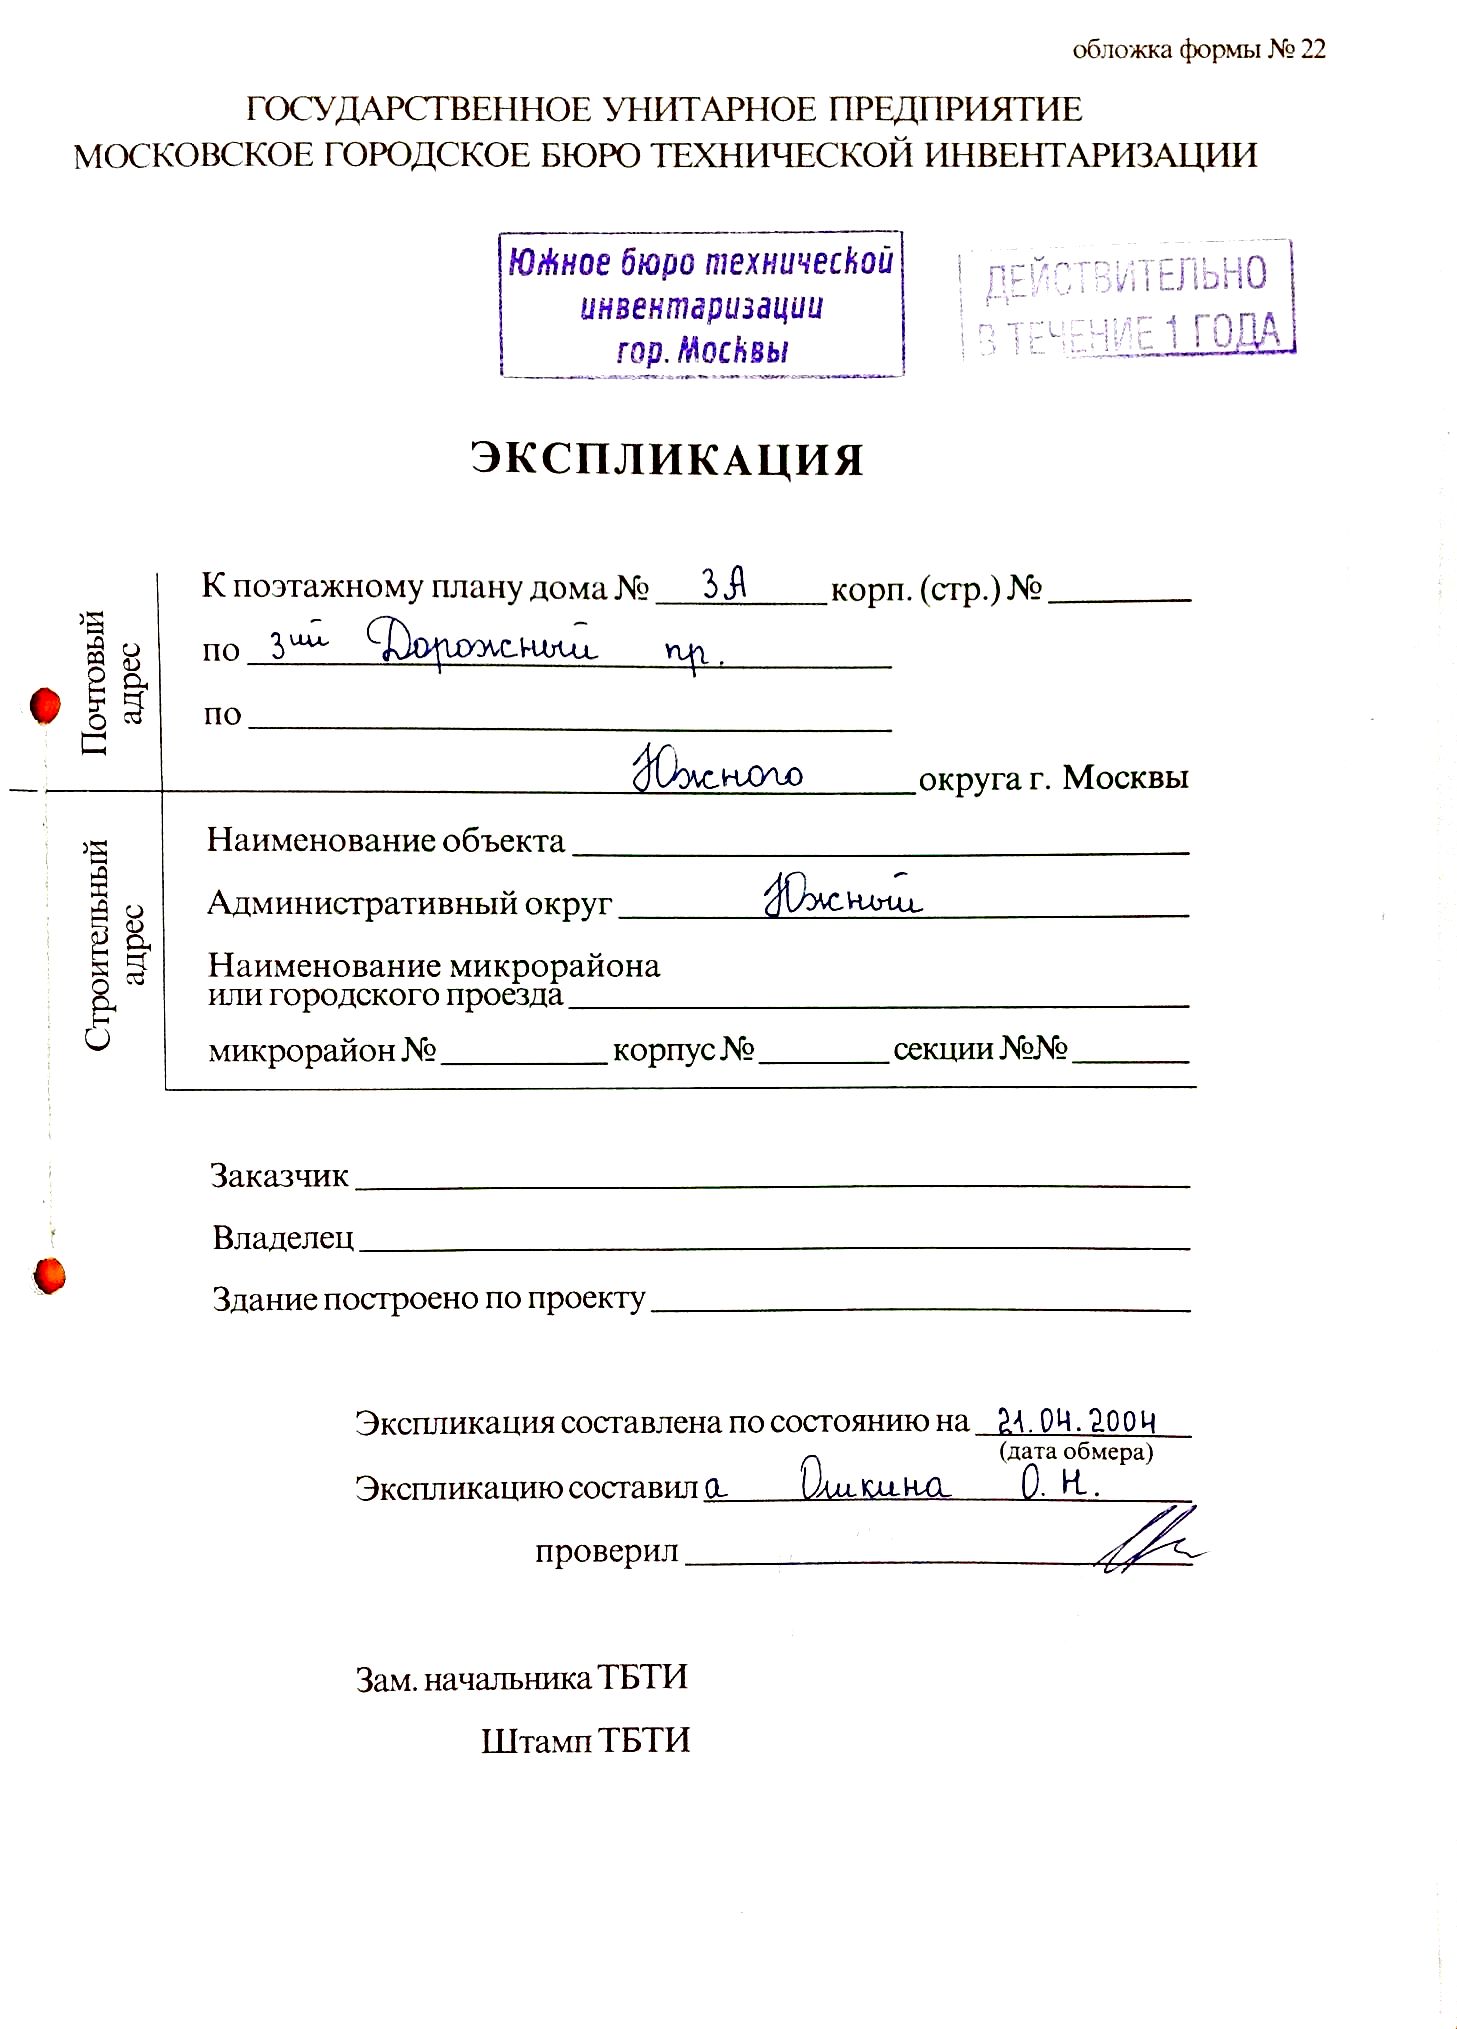 обложка формы № 22
ГОСУДАРСТВЕННОЕ УНИТАРНОЕ ПРЕДПРИЯТИЕ
МОСКОВСКОЕ ГОРОДСКОЕ БЮРО ТЕХНИЧЕСКОЙ ИНВЕНТАРИЗАЦИИ
Южное бюро технической
инвентаризации
гор. Москвы
ДЕЙСТВИТЕЛЬНО
В ТЕЧЕНИЕ 1 ГОДА
ЭКСПЛИКАЦИЯ
Почтовый
адрес
К поэтажному плану дома № 3А корп. (стр.) №
по 3ий Дорожный пр.
по
Южного округа г. Москвы
Строительный
адрес
Наименование объекта
Административный округ Южный
Наименование микрорайона
или городского проезда
микрорайон № корпус № секции №№
Заказчик
Владелец
Здание построено по проекту
Экспликация составлена по состоянию на 21.04.2004
(дата обмера)
Экспликацию составила Ошкина О.Н.
проверил
Зам. начальника ТБТИ
Штамп ТБТИ